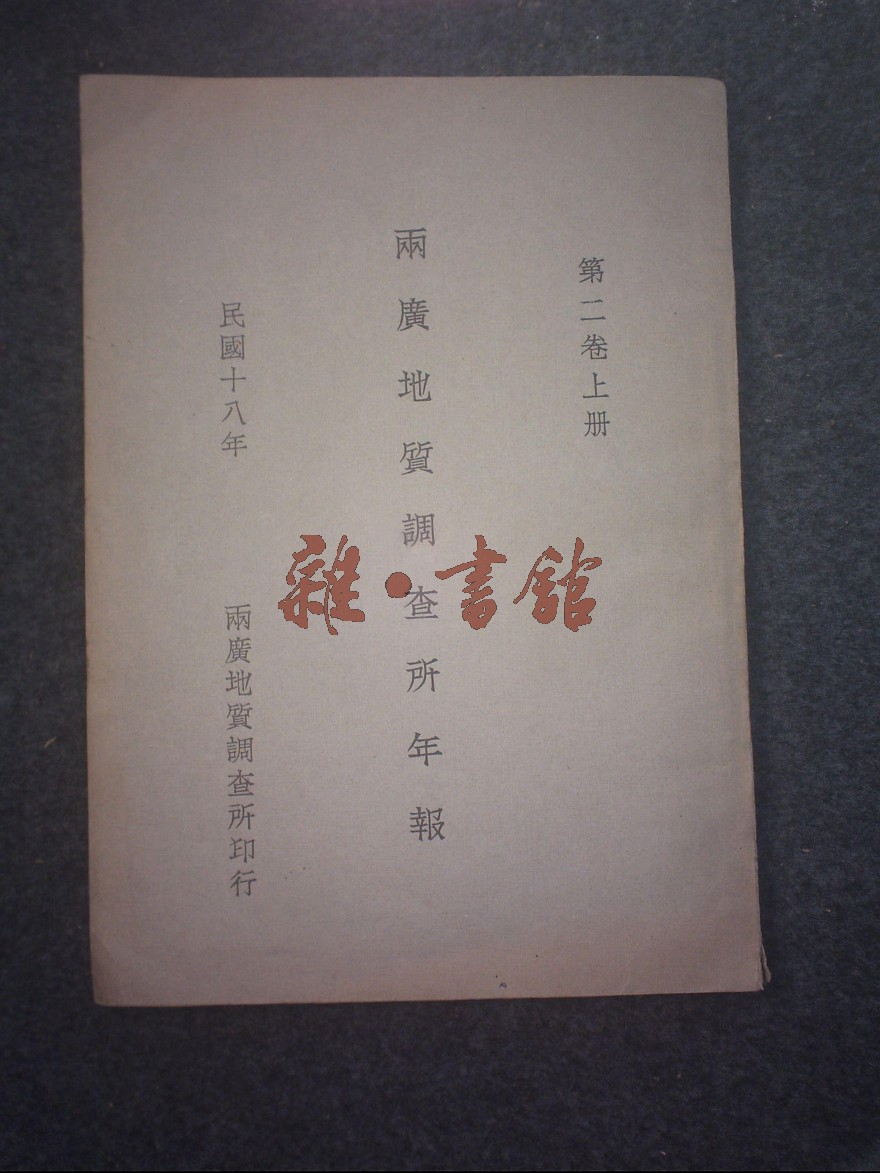 第二卷上册
兩廣地質調查所年報
民國十八年
兩廣地質調查所印行
雜·書館